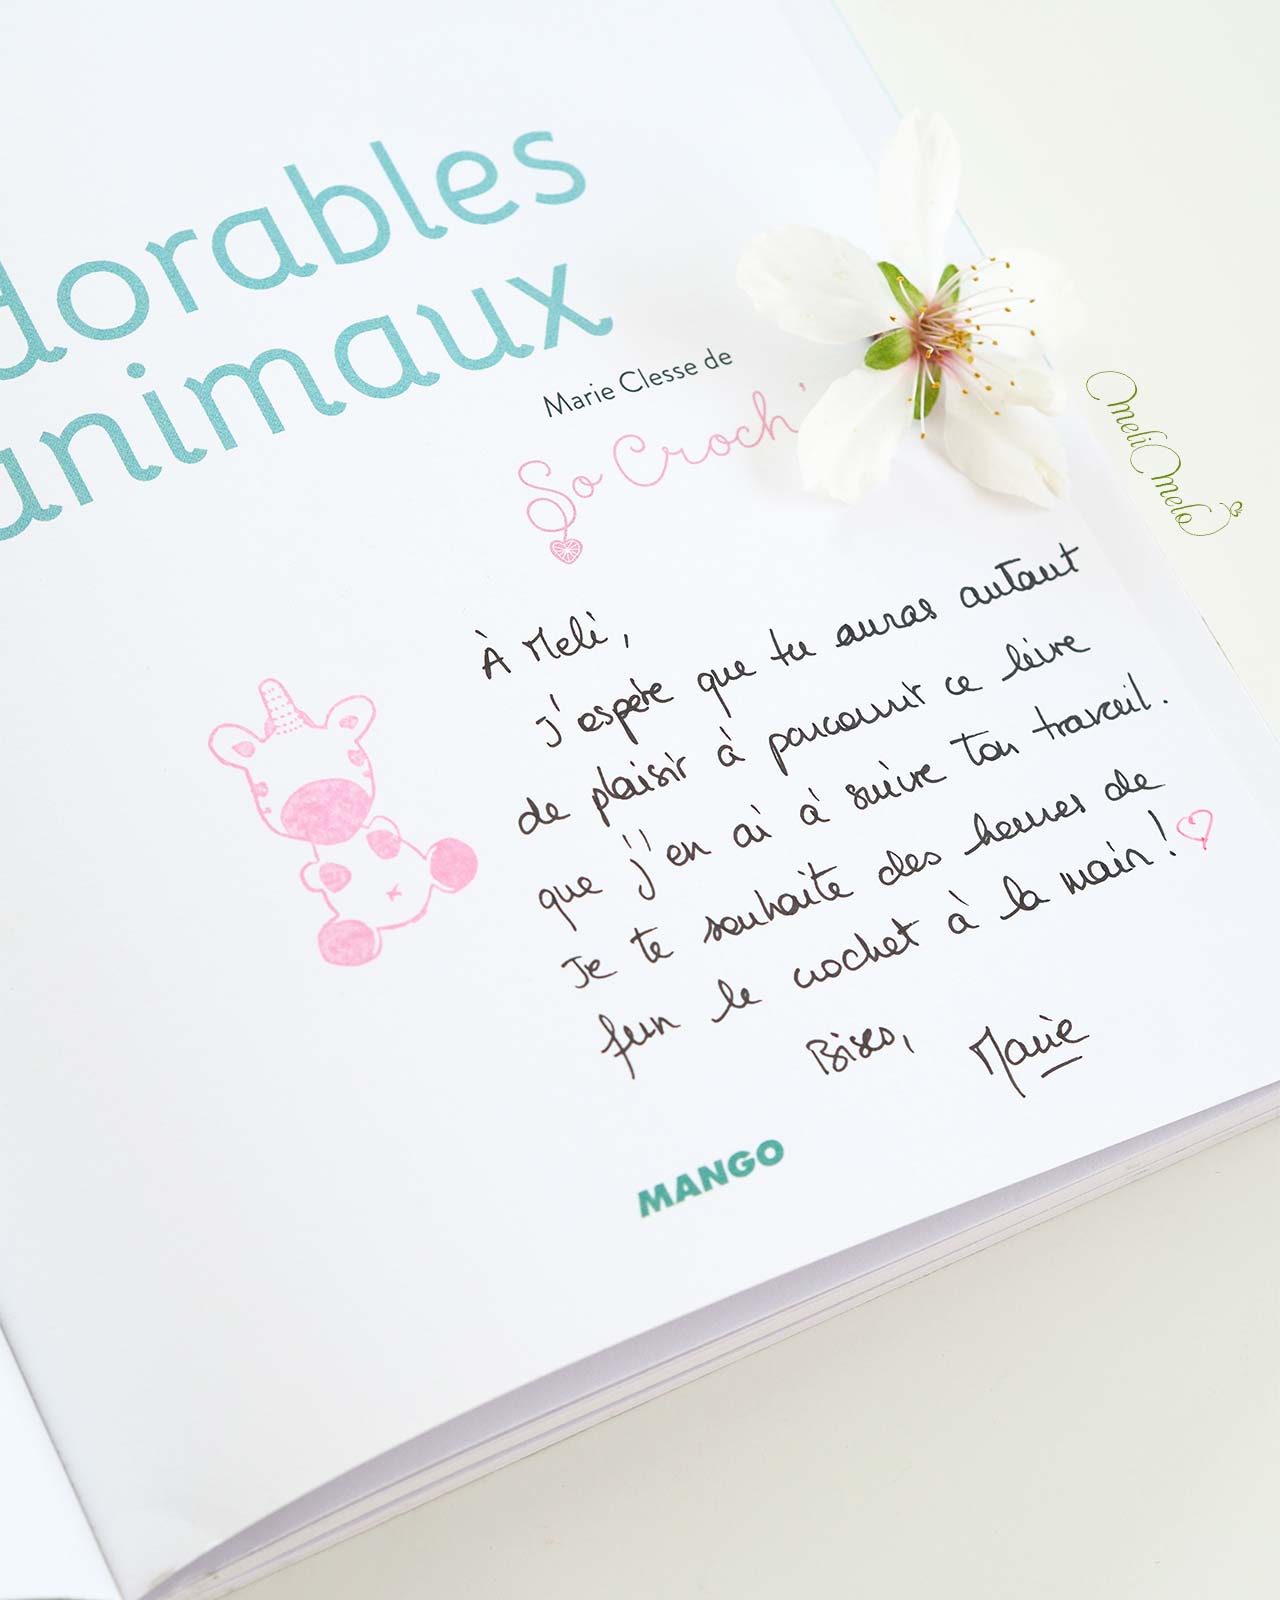 dorables
animaux
Marie Clesse de
So Croch'
À Meli,
j'espère que tu auras autant
de plaisir à parcourir ce livre
que j'en ai à suivre ton travail.
Je te souhaite des heures de
fun le crochet à la main !
Bises,
Marie
MANGO
Meli Melo